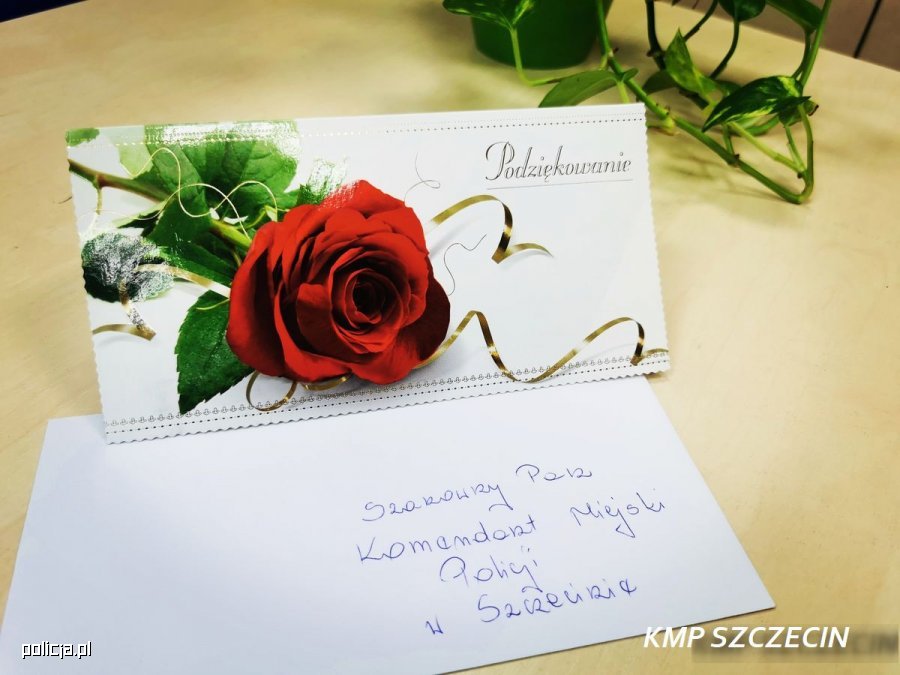 Podziękowanie
Szanowny Pan
Komendant Miejski
Policji
w Szczecinie
KMP SZCZECIN
policja.pl